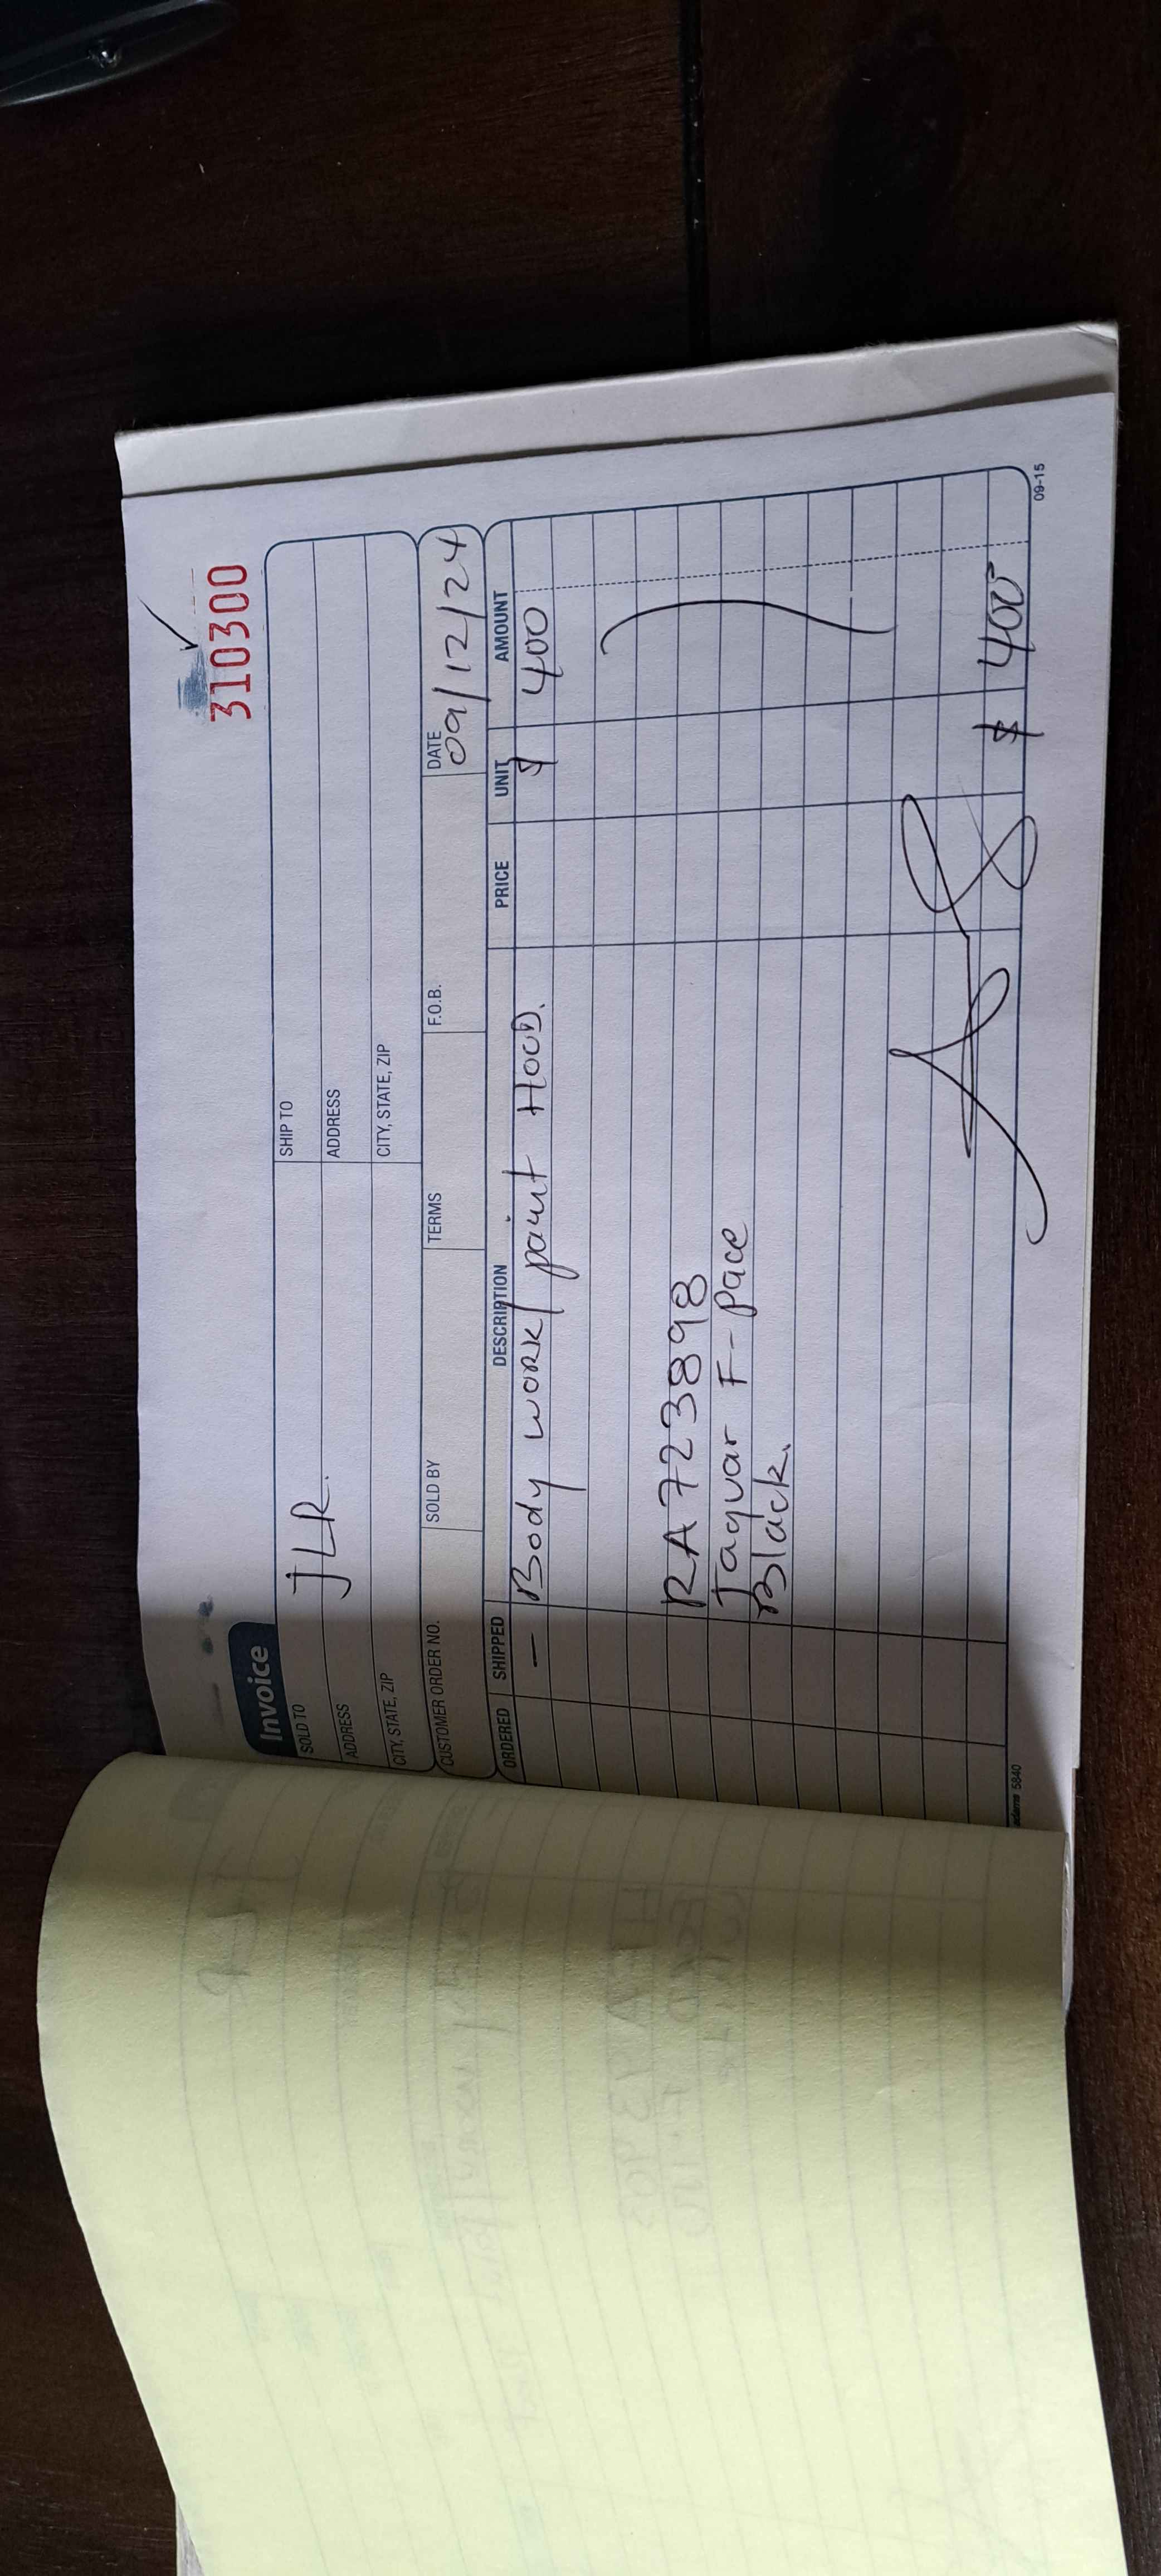 310300
Invoice
SOLD TO JLR. SHIP TO
ADDRESS ADDRESS
CITY, STATE, ZIP CITY, STATE, ZIP
CUSTOMER ORDER NO. SOLD BY TERMS F.O.B. DATE 09/12/24
ORDERED SHIPPED DESCRIPTION PRICE UNIT AMOUNT
— Body work/paint HOOD. $ 400
RA723898
Jaguar F-Pace
Black.
$ 400
adams 5840 09-15